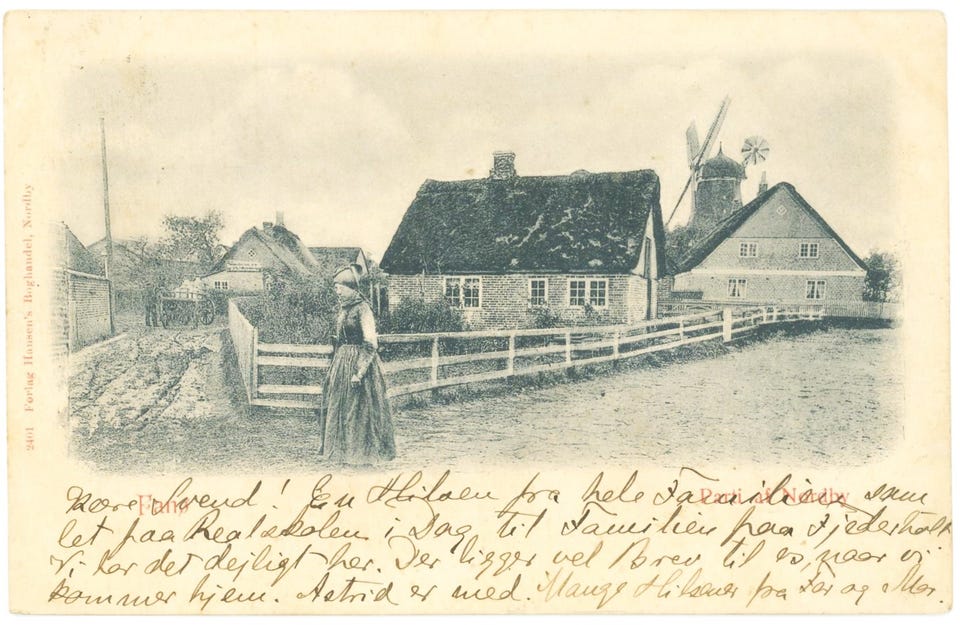 2401 Forlag Hansen's Boghandel, Nordby
Fanø
Parti af Nordby
Kære Svend! En Hilsen fra hele Familien, sam
let paa Realskolen i Dag til Familien paa Fjederholt
Vi har det dejligt her. Der ligger vel Brev til os, naar vi
kommer hjem. Astrid er med. Mange Hilsener fra Far og Mor.